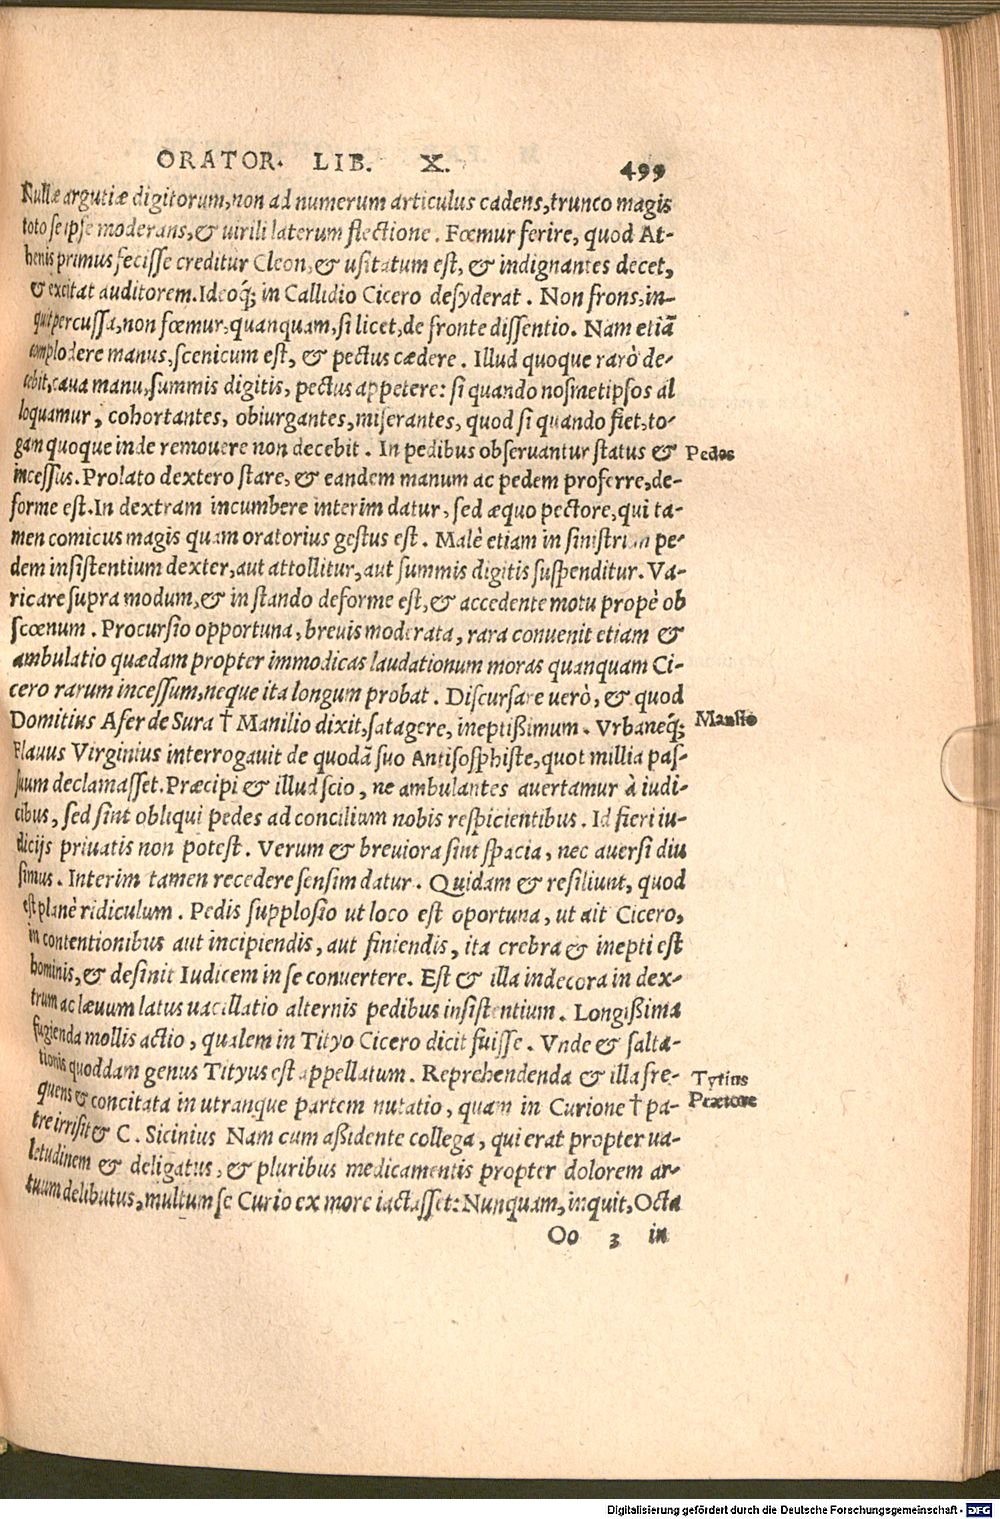 ORATOR. LIB. X. 499
Nullæ argutiæ digitorum, non ad numerum articulus cadens, trunco magis
toto se ipse moderans, & uirili laterum flectione. Fœmur ferire, quod At-
henis primus fecisse creditur Cleon, & usitatum est, & indignantes decet,
& excitat auditorem. Ideoq́; in Callidio Cicero desyderat. Non frons, in-
quit percussa, non fœmur, quanquam, si licet, de fronte dissentio. Nam etiã
complodere manus, scenicum est, & pectus cædere. Illud quoque rarò de-
cebit, caua manu, summis digitis, pectus appetere: si quando nosmetipsos al
loquamur, cohortantes, obiurgantes, miserantes, quod si quando fiet, to-
gam quoque inde remouere non decebit. In pedibus obseruantur status & Pedes
incessus. Prolato dextero stare, & eandem manum ac pedem proferre, de-
forme est. In dextram incumbere interim datur, sed æquo pectore, qui ta-
men comicus magis quam oratorius gestus est. Malè etiam in sinistrum pe-
dem insistentium dexter, aut attollitur, aut summis digitis suspenditur. Va-
ricare supra modum, & in stando deforme est, & accedente motu propè ob
scœnum. Procursio opportuna, breuis moderata, rara conuenit etiam &
ambulatio quædam propter immodicas laudationum moras quanquam Ci-
cero rarum incessum, neque ita longum probat. Discursare uerò, & quod
Domitius Afer de Sura † Manilio dixit, satagere, ineptißimum. Vrbaneq́; Manlio
Flauus Virginius interrogauit de quodã suo Antisosphiste, quot millia pas-
suum declamasset. Præcipi & illud scio, ne ambulantes auertamur à iudi-
cibus, sed sint obliqui pedes ad concilium nobis respicientibus. Id fieri iu-
dicijs priuatis non potest. Verum & breuiora sint spacia, nec auersi diu
simus. Interim tamen recedere sensim datur. Quidam & resiliunt, quod
est planè ridiculum. Pedis supplosio ut loco est oportuna, ut ait Cicero,
in contentionibus aut incipiendis, aut finiendis, ita crebra & inepti est
hominis, & desinit Iudicem in se conuertere. Est & illa indecora in dex-
trum ac læuum latus uacillatio alternis pedibus insistentium. Longißima
fugienda mollis actio, qualem in Tityo Cicero dicit fuisse. Vnde & salta-
tionis quoddam genus Tityus est appellatum. Reprehendenda & illa fre- Tytius
quens & concitata in utranque partem nutatio, quam in Curione † pa- Prætore
tre irrisit & C. Sicinius Nam cum aßidente collega, qui erat propter ua-
letudinem & deligatus, & pluribus medicamentis propter dolorem ar-
tuum delibutus, multum se Curio ex more iactasset: Nunquam, inquit, Octa
Oo 3 in
Digitalisierung gefördert durch die Deutsche Forschungsgemeinschaft - DFG